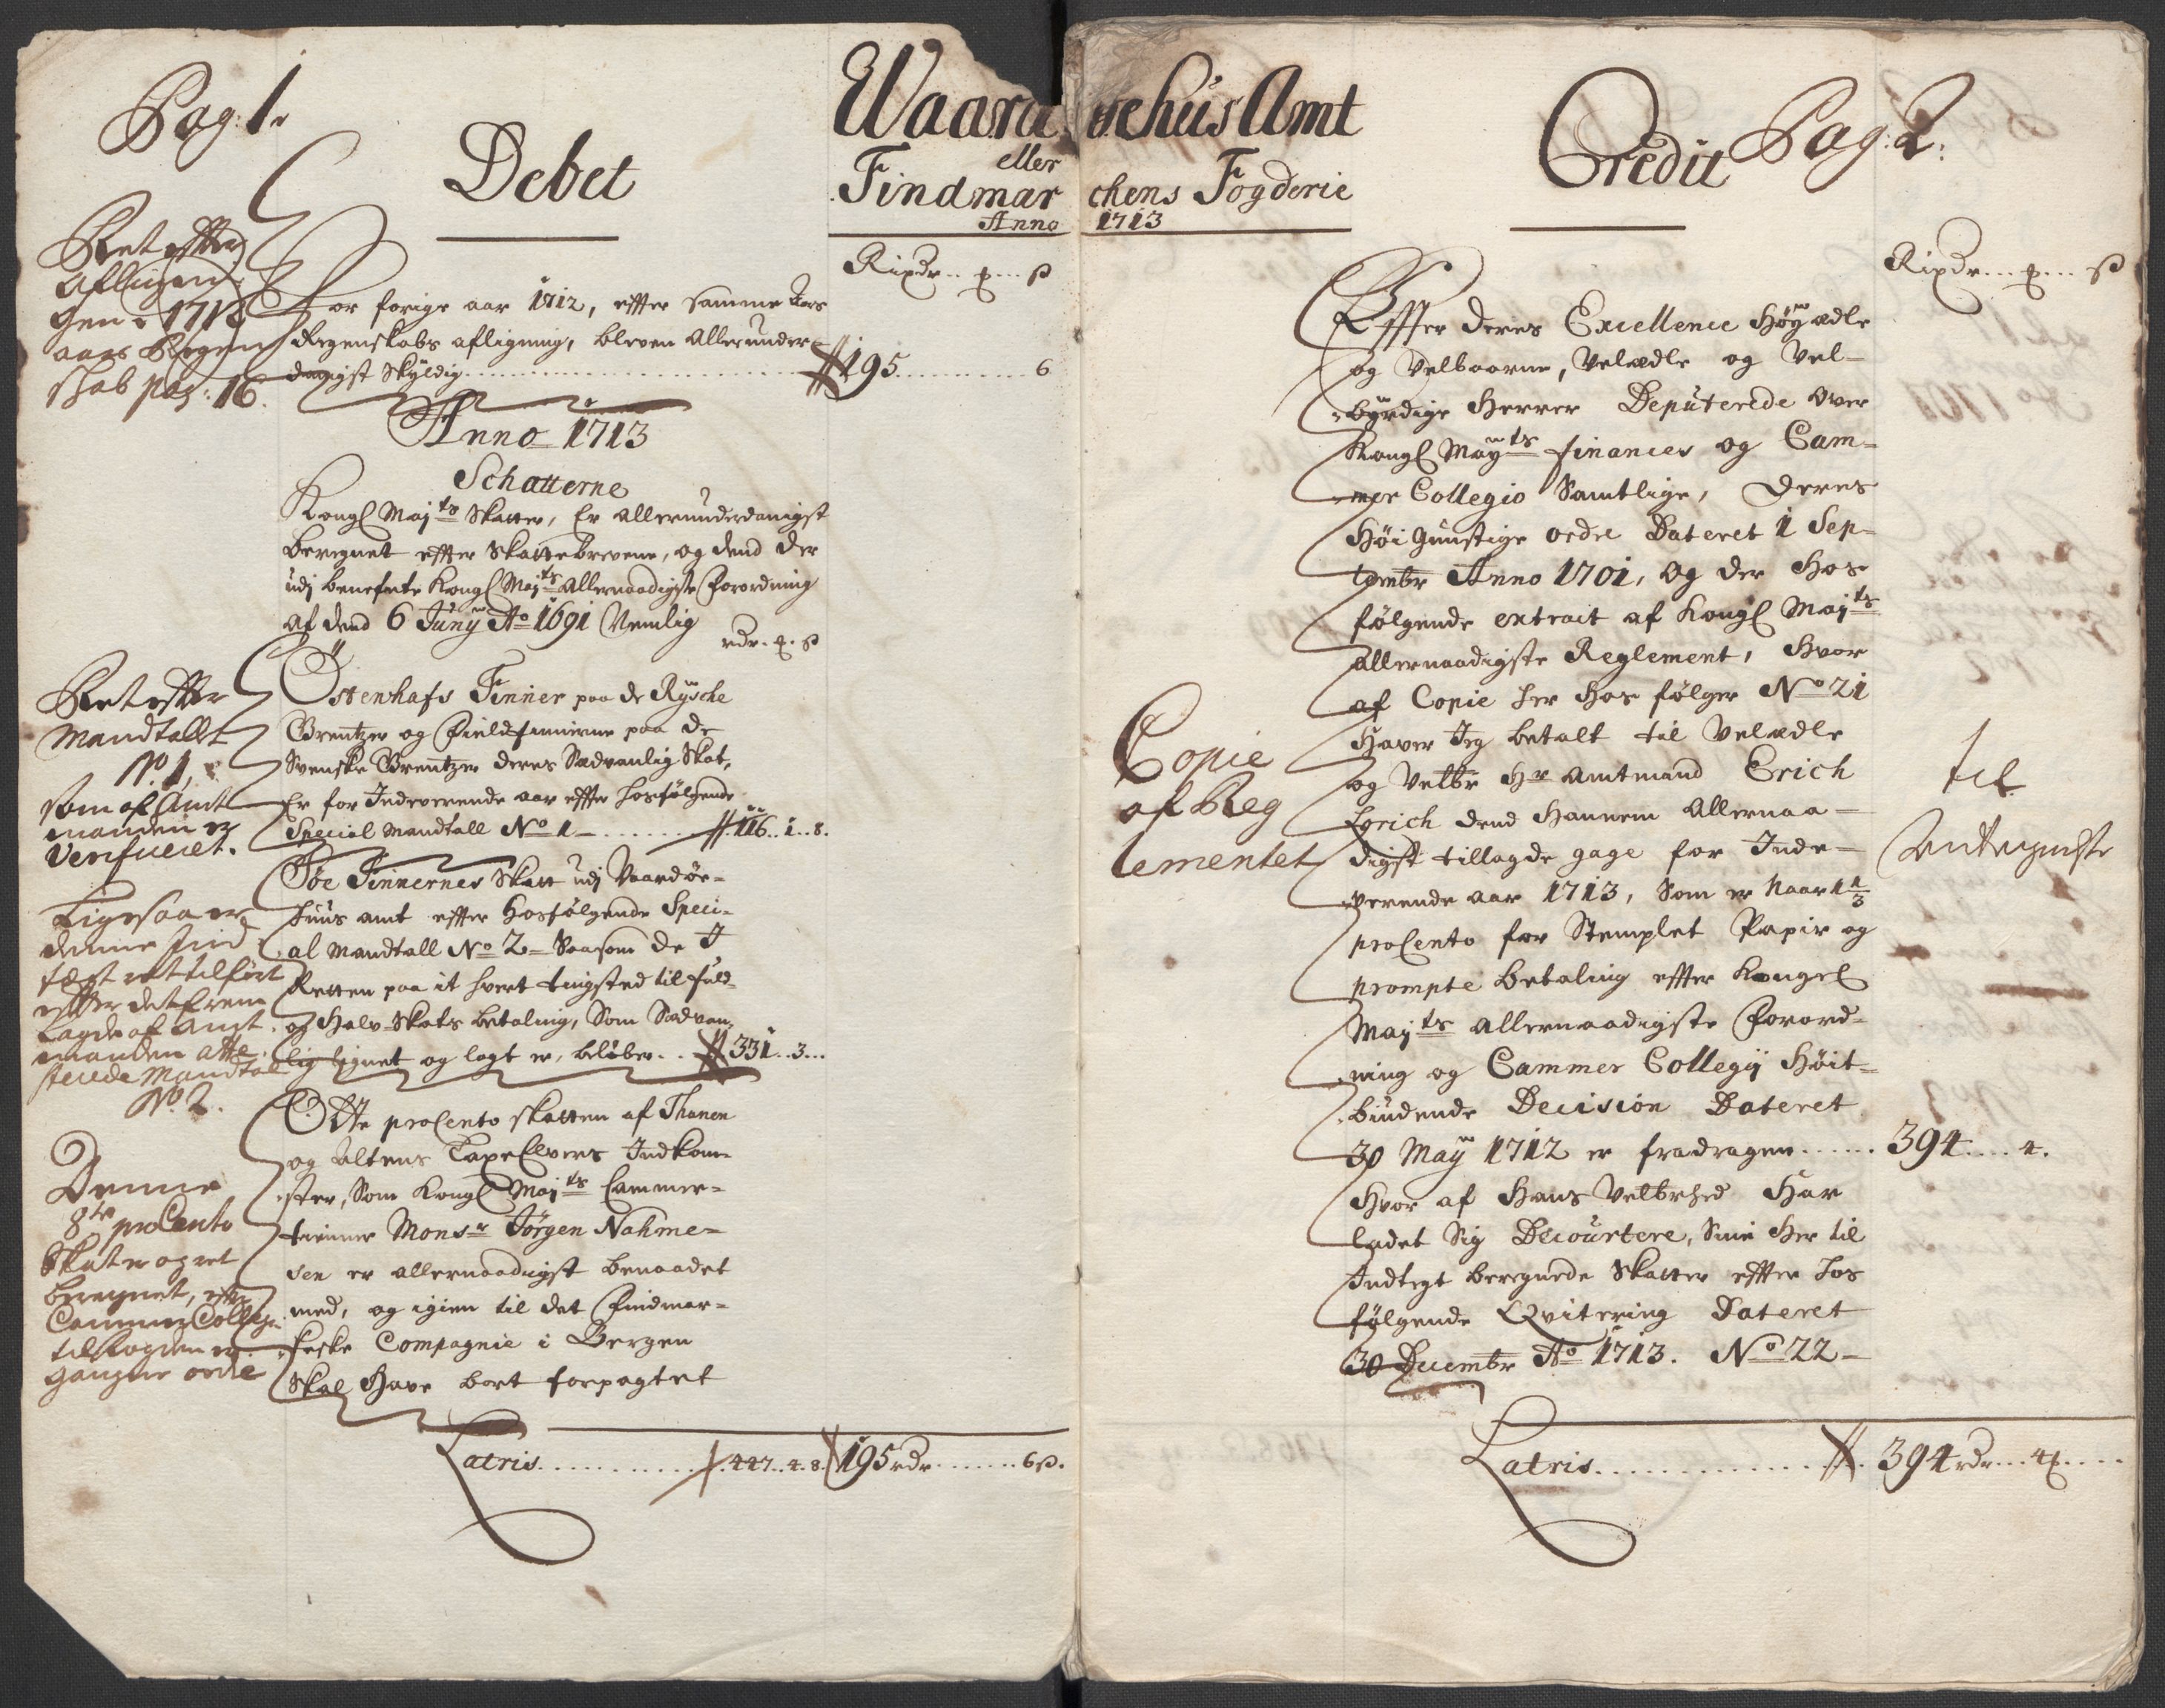 Pag: 1.
Debet
Waardøehuus Amt
eller
Findmarchens Fogderie
Anno 1713
Rixdr .. ... ß
Ret effter
aflligningen
1712
aars Regen
schab pag: 16.
For forige aar 1712, effter samme Aars
Regenskabs afligning, bleven Allerunder-
danigst Skyldig 195 6
Anno 1713
Schatterne
Kongl Maj:ts Skatter, Er allerunderdanigst
beregnet effter Skattebrevene, og dend der
udj benefnte Kongl Maj:ts Allernaadigste Forordning
af dend 6 Junÿ Ao 1691 Nemlig
rdr. ß
Ret effter
Mandtallet
No. 1,
som af Amt
manden er
Verificeret.
Østenhafs Finner paa de Rÿsche
Grentzer og Fieldfinnerne paa de
Svenske Grentzer deres Sædvanlig Skat,
Er for Indeverende aar effter hosfølgende
Special Mandtall No 1 - 116 .. 1 .. 8.
Ligesaa er
denne Ind
tægt ret tilført
effter det frem
lagde af Amt-
manden atte-
sterede Mandtal
No. 2.
Søe Finnernes Skatt udj Vaardøe-
huus amt effter hosfølgende Speci-
al Mandtall No 2 - Saasom de J
Retten paa it hvert tingsted til fuld
og Halv Skats betaling, Som Sædvan-
lig lignet og lagt er, beløber .. 331 .. 3 ...
Denne
8te proCento
Skat er og ret
beregnet, effter
Cammer Collegi
til fogden er
gangne ordre
Otte proCento skatten af Thanen
og Altens Laxe Elvers Indkom-
ster, Som Kongl Maj:ts Cammer-
tienner Monsr Jørgen Nahme-
sen er allernaadigst benaadet
med, og igien til det Findmar-
keske Compagnie i Bergen
Skal Have bort forpagtet
Latris 447 .. 4 .. 8. 195 rdr 6 ß.
Credit
Pag: 2:
Rixdr ... ... ß
Effter Deres Excellence Høÿ ædle
og Velbaarne, Velædle og Vel-
bÿrdige Herrer Deputerede over
Kongl Maÿ:ts finances og Cam-
mer Collegio Samtlige, Deres
Høi Gunstige ordre Dateret 1 Sep-
tembr Anno 1701, og der Hos
følgende extract af Kongl Maj:ts
allernaadigste Reglement, Hvor
af Copie her Hos følger No 21
Haver Jeg betalt til Velædle
og Velbr Hr Amtmand Erich
Lorich dend Hannem Allernaa-
digst tillagde gage for Inde-
verende aar 1713, Som er Naar 1 1/3
proCento for Stemplet Papir og
prompte betaling effter Kongel
Maj:ts allernaadigste Forord-
ning og Cammer Collegij Høit-
biudende Decision Dateret
30 Maÿ 1712 er fradragen 394 .... 4.
Hvor af Hans Velbrhed Har
ladet Sig Decourtere, Sine Her til
Indtegt beregnede Skatter effter hos
følgende Qvitering Dateret
30 Decembr Ao 1713. No 22 -
Copie
af Reg
lementet
til
Latris 394 rdr ... 4